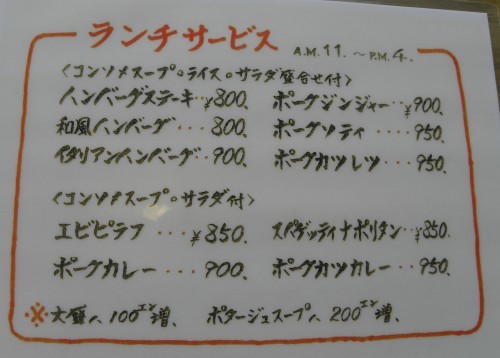 ランチサービス A.M.11.～P.M.4.
〈コンソメスープ。ライス。サラダ盛合せ付〉
ハンバーグステーキ‥¥800. ポークジンジャー‥¥900.
和風ハンバーグ‥‥800. ポークソティ‥‥950.
イタリアンハンバーグ‥900. ポークカツレツ‥‥950.
〈コンソメスープ。サラダ付〉
エビピラフ‥‥¥850. スパゲッティナポリタン‥¥850.
ポークカレー‥‥900. ポークカツカレー‥‥950.
※大盛ハ100エン増、 ポタージュスープハ200エン増、